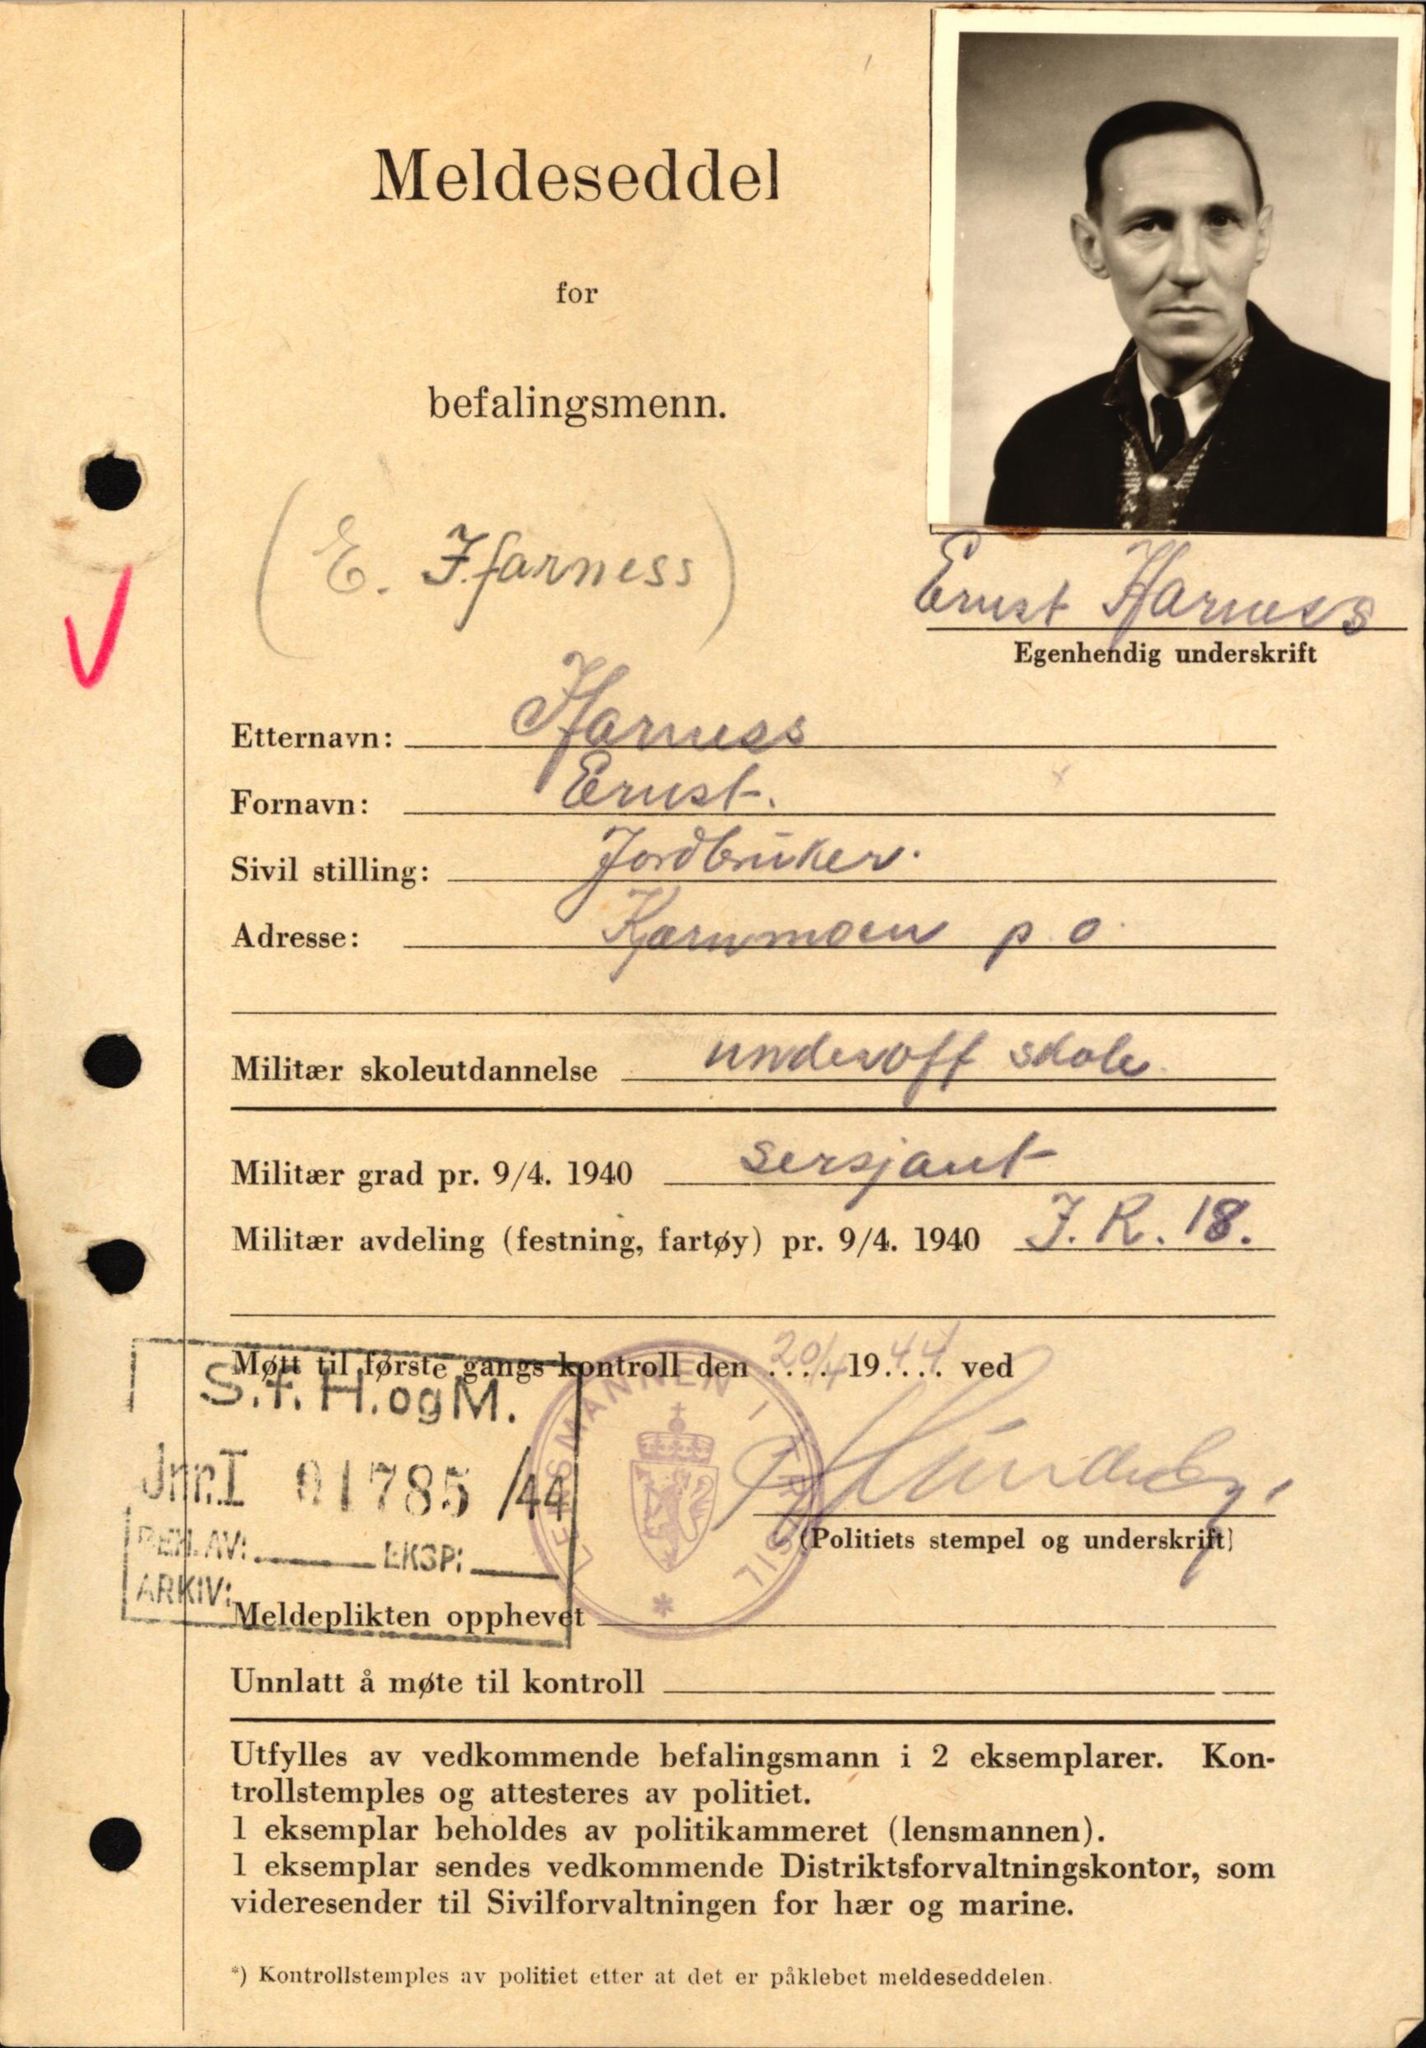 Meldeseddel
for
befalingsmenn.
(E. Hfarness)
Ernst Harness
Egenhendig underskrift
Etternavn: Harness
Fornavn: Ernst.
Sivil stilling: Jordbruker.
Adresse: Kjernmoen p.o.
Militær skoleutdannelse underoff skole
Militær grad pr. 9/4. 1940 sersjant
Militær avdeling (festning, fartøy) pr. 9/4. 1940 J.R. 18.
Møtt til første gangs kontroll den 20/4 1944 ved
S.f.H.ogM.
Jnr.I 01785/44
BEH. AV: EKSP:
ARKIV:
LENSMANNEN I TRYSIL
(Politiets stempel og underskrift)
Meldeplikten opphevet
Unnlatt å møte til kontroll
Utfylles av vedkommende befalingsmann i 2 eksemplarer. Kon-
trollstemples og attesteres av politiet.
1 eksemplar beholdes av politikammeret (lensmannen).
1 eksemplar sendes vedkommende Distriktsforvaltningskontor, som
videresender til Sivilforvaltningen for hær og marine.
*) Kontrollstemples av politiet etter at det er påklebet meldeseddelen.